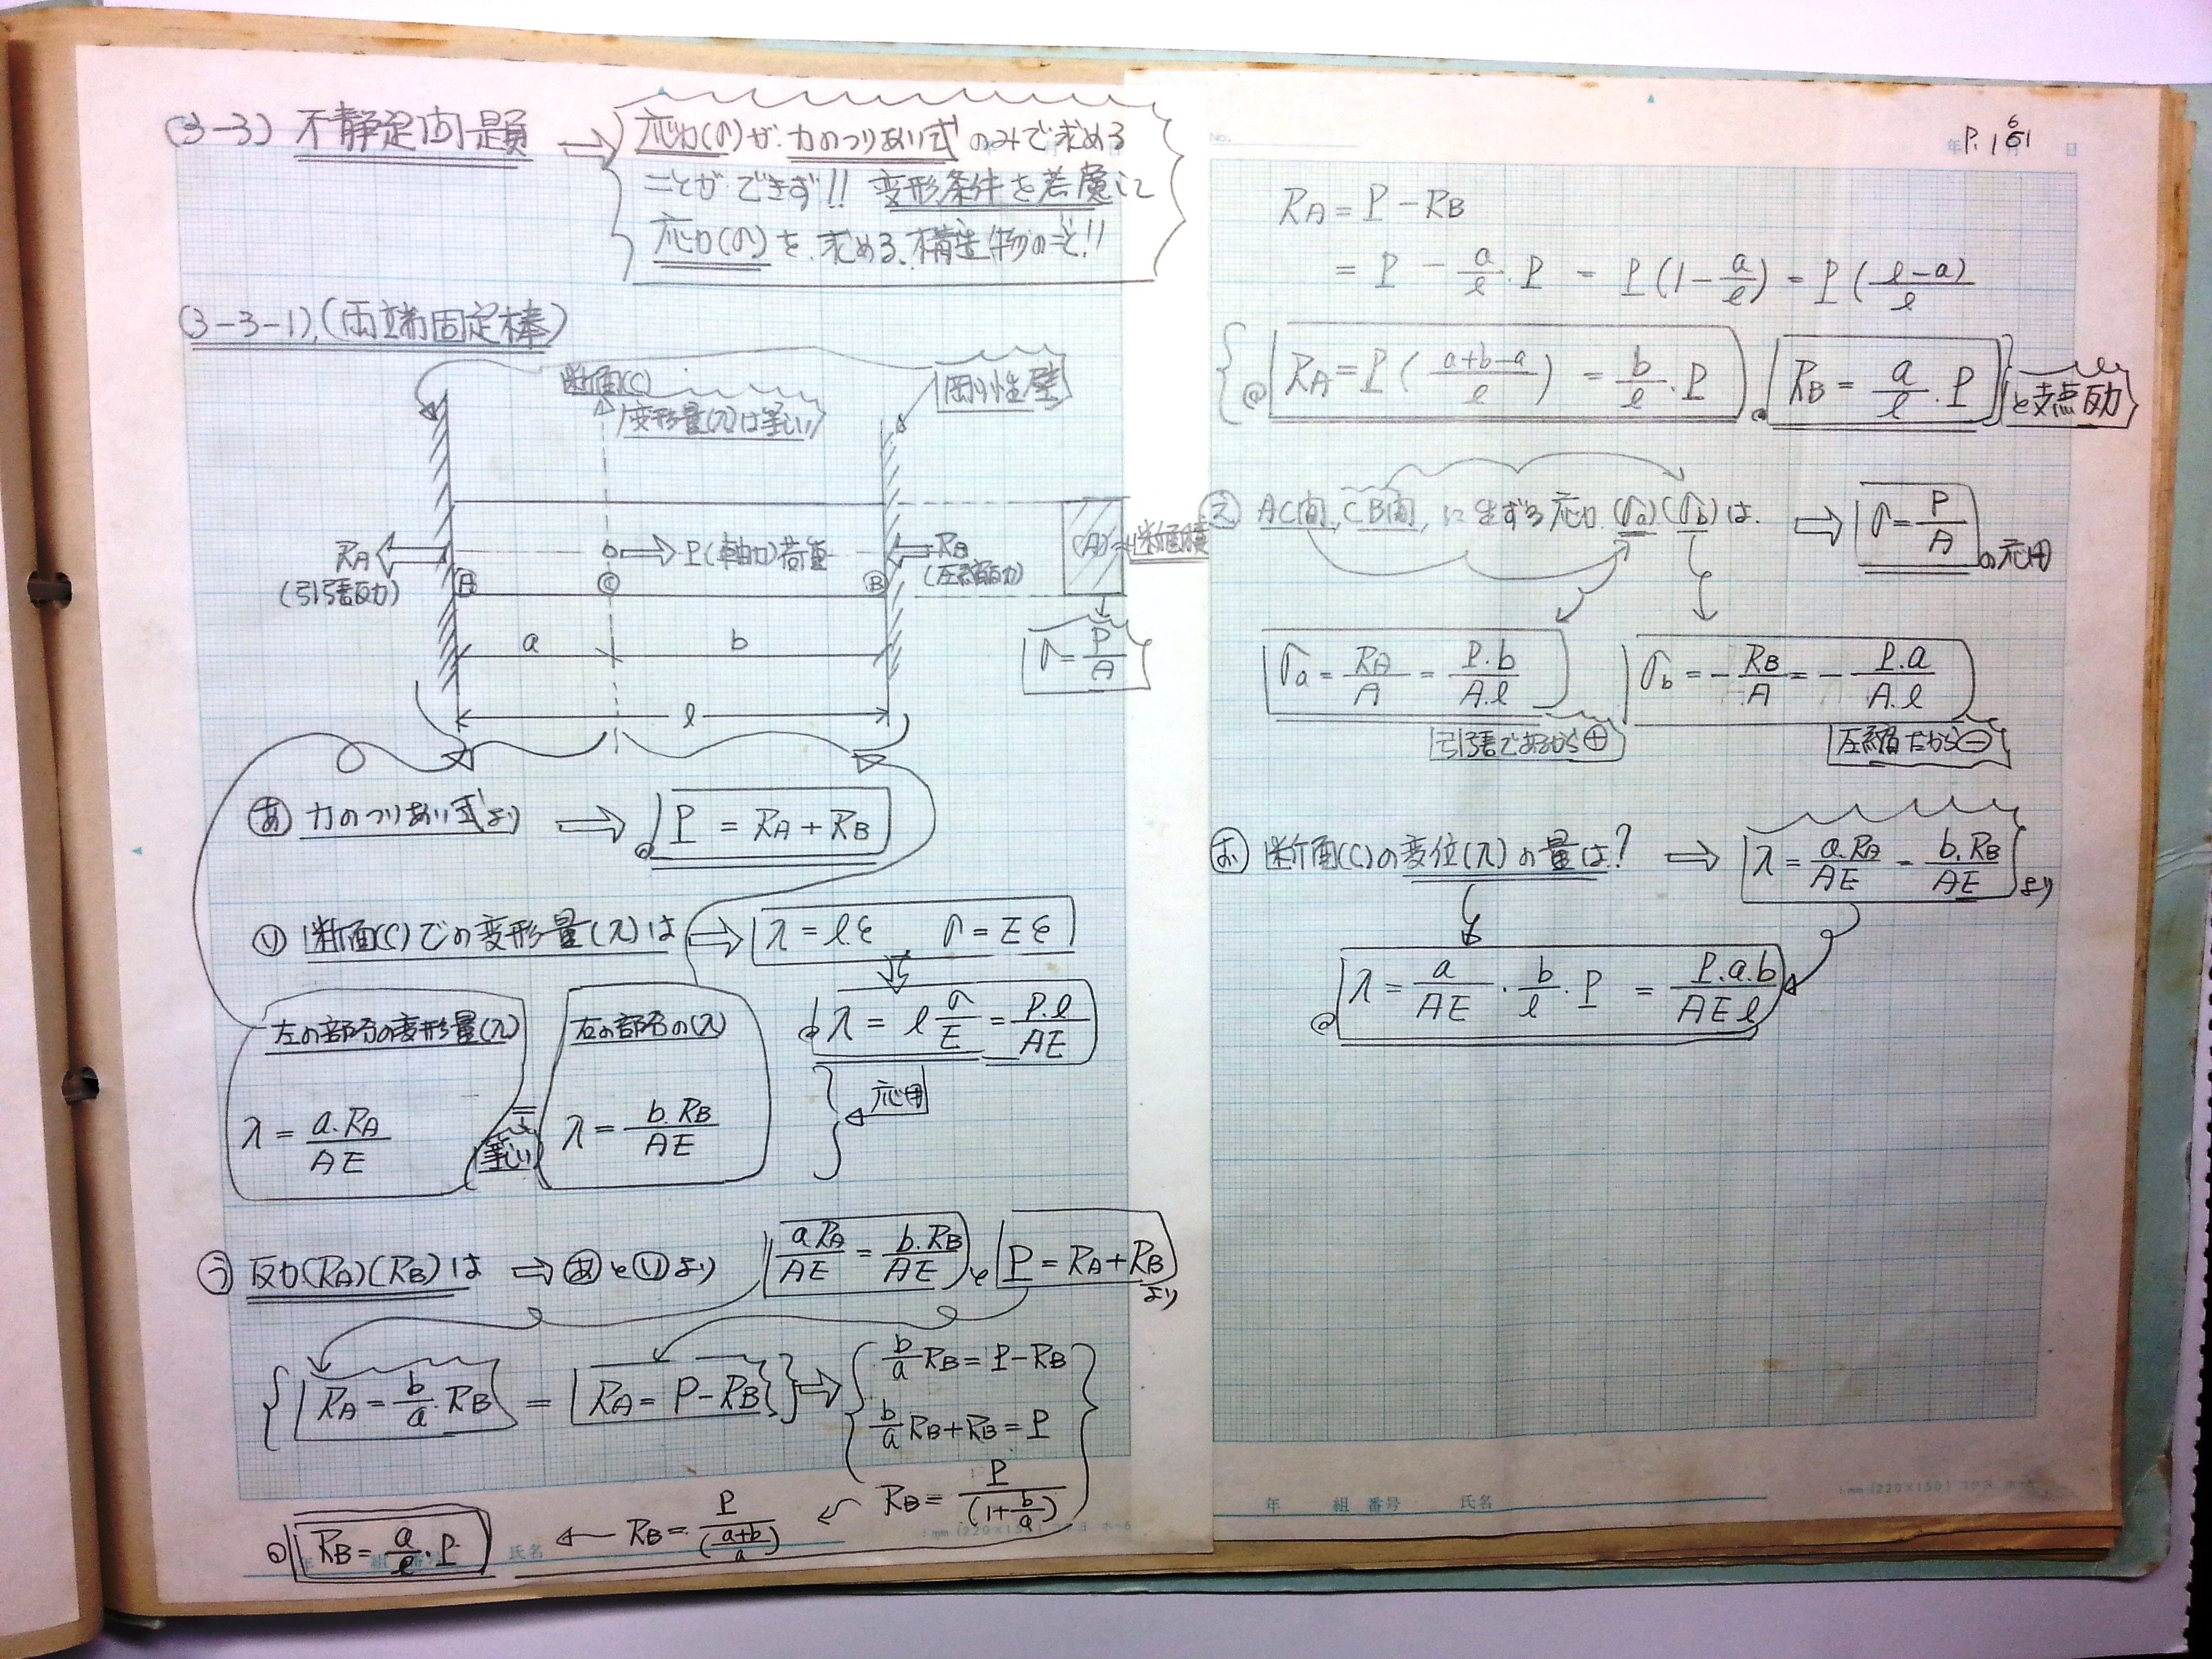 (3-3) 不静定問題 ⇒ 応力(σ)が、力のつりあい式のみで求める
ことができず!! 変形条件を考慮して
応力(σ)を、求める、構造物のこと!!
(3-3-1).(両端固定棒)
断面(C)
変形量(λ)は等しい
剛性壁
RA
(引張反力)
Ⓐ
Ⓒ
P(軸力)荷重
Ⓑ
RB
(圧縮反力)
(A)
断面積
a
b
σ = P/A
l
あ 力のつりあい式より ⇒ P = RA + RB
い 断面(C)での変形量(λ)は ⇒ λ = l.ε σ = Eε
λ = l σ/E = P.l/AE
応用
左の部分の変形量(λ)
λ = a.RA/AE
=
等しい
右の部分の(λ)
λ = b.RB/AE
う 反力(RA)(RB)は ⇒ あといより aRA/AE = b.RB/AE と P = RA + RB より
{ RA = b/a.RB = RA = P − RB } ⇒
b/a RB = P − RB
b/a RB + RB = P
RB = P/(1+b/a)
← RB = P/((a+b)/a)
RB = a/l.P
年 組 番号 氏名
No.
年 月 日
P.161
RA = P − RB
= P − a/l.P = P(1−a/l) = P(l−a/l)
RA = P(a+b−a/l) = b/l.P RB = a/l.P と支点反力
え AC間, CB間, に生ずる応力(σa)(σb)は. ⇒ σ = P/A の応用
σa = RA/A = P.b/A.l
引張であるから⊕
σb = −RB/A = −P.a/A.l
圧縮だから⊖
お 断面(C)の変位(λ)の量は? ⇒ λ = a.RA/AE = b.RB/AE より
λ = a/AE . b/l . P = P.a.b/AEl
年 組 番号 氏名